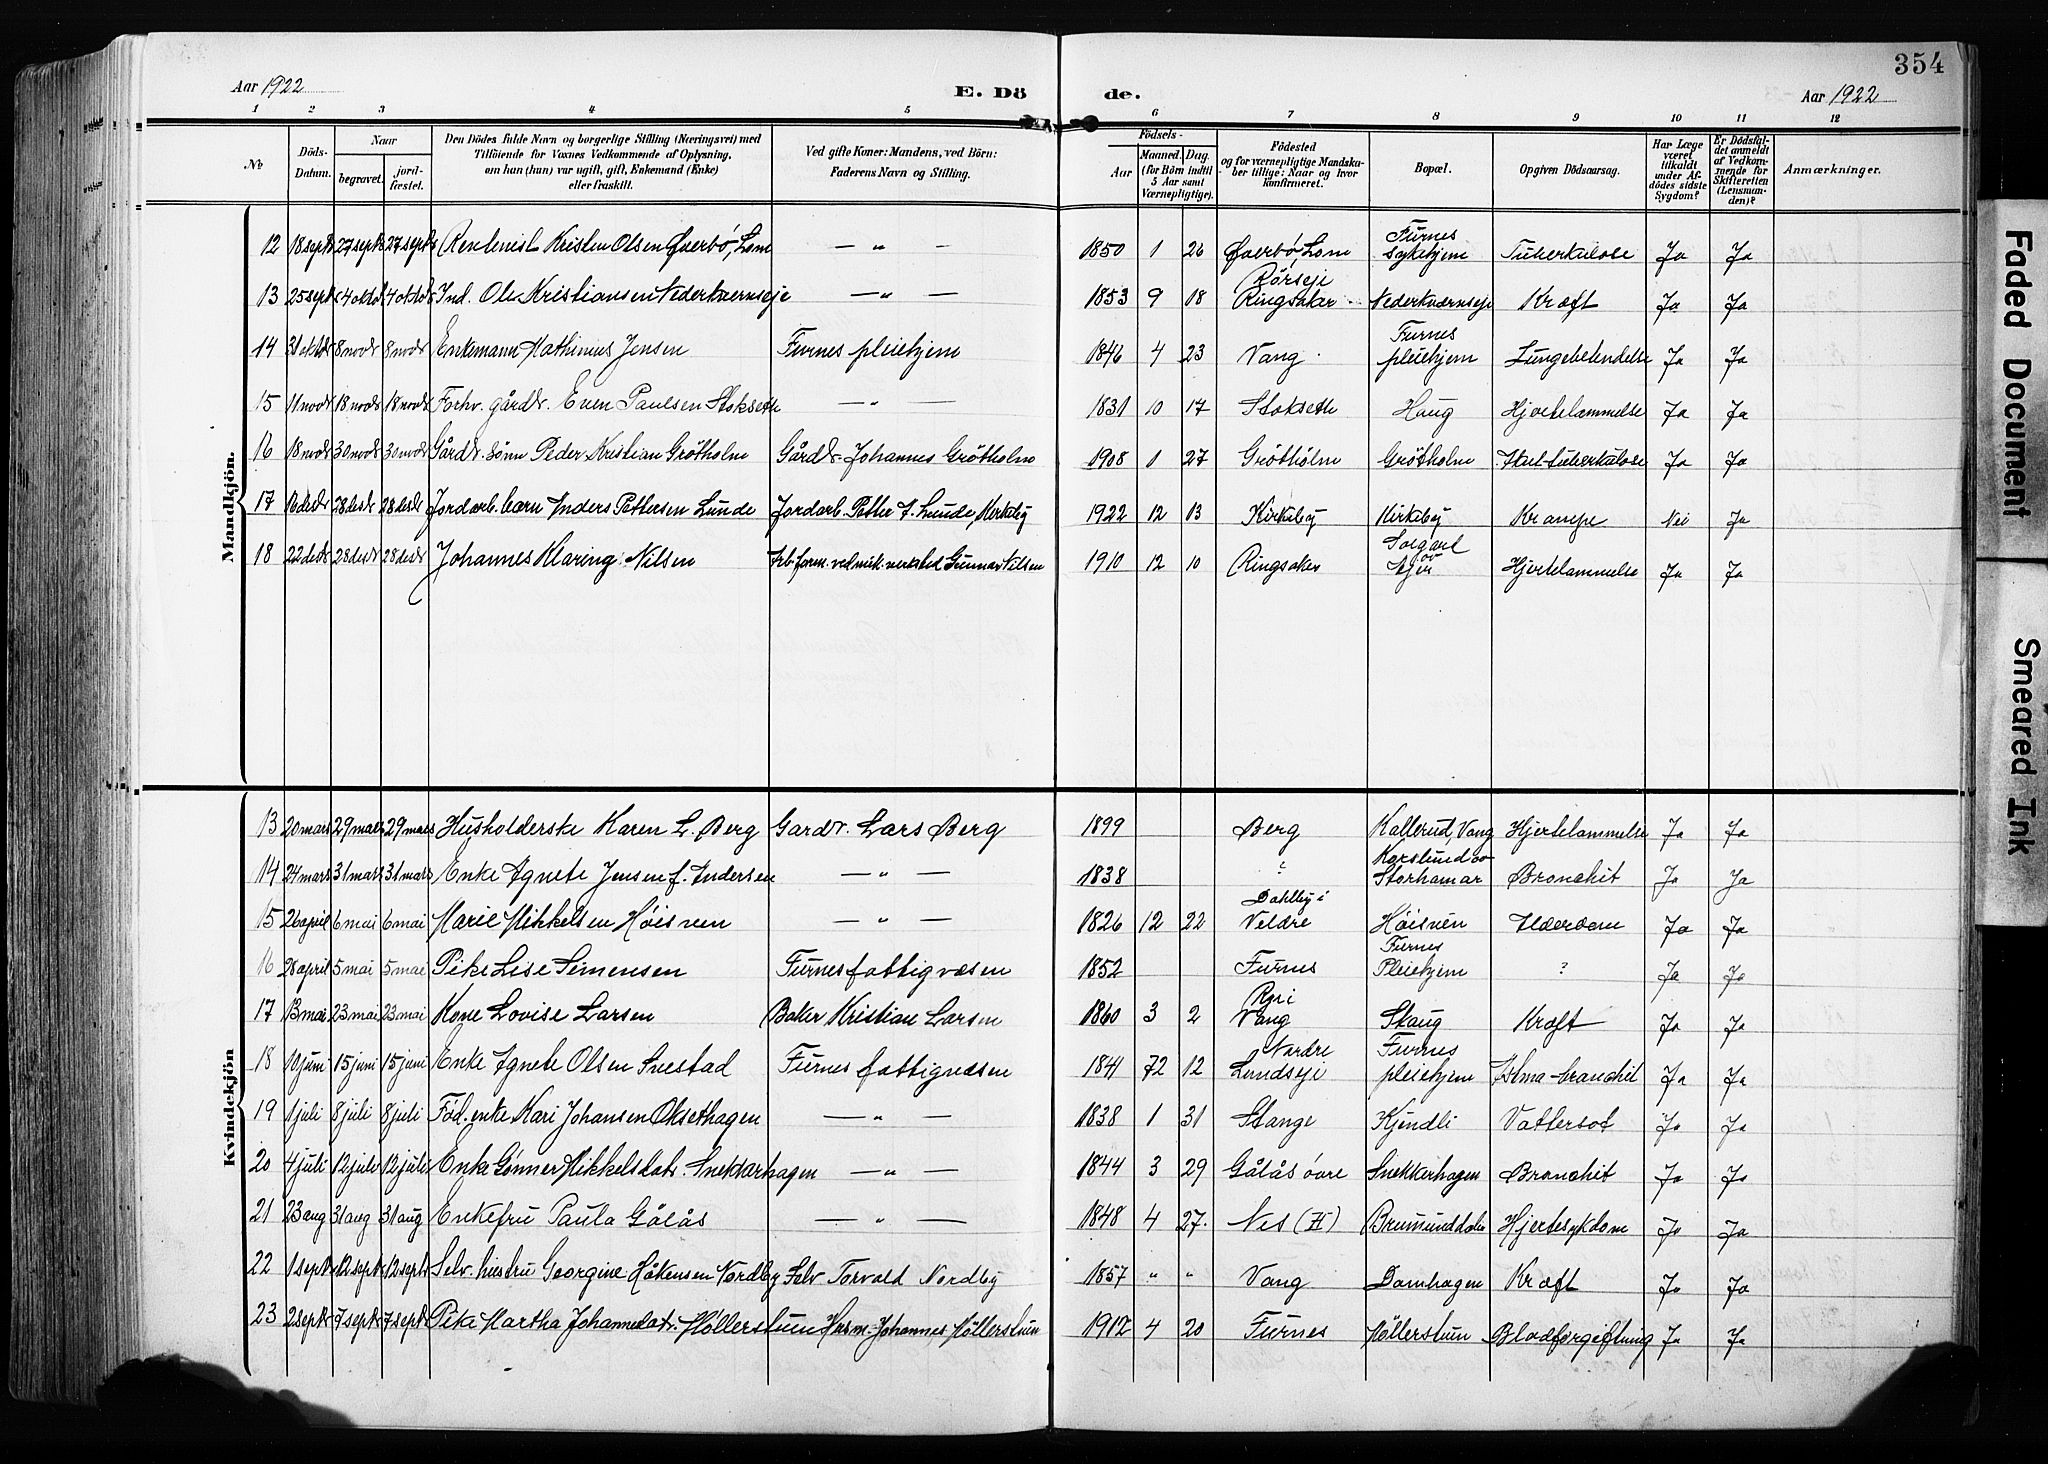 354
Aar 1922 E. Dö de. Aar 1922
1 2 3 4 5 6 7 8 9 10 11 12
No
Döds-Datum.
Naar
begravet.
jord-fæstet.
Den Dödes fulde Navn og borgerlige Stilling (Næringsvei) med
Tilföiende for Voxnes Vedkommende af Oplysning,
om hun (hun) var ugift, gift, Enkemand (Enke)
eller fraskilt.
Ved gifte Koner: Mandens, ved Börn:
Faderens Navn og Stilling.
Födsels-
Aar
Maaned. Dag.
(for Börn indtil
5 Aar samt
Værnepligtige).
Födested
og for værnepligtige Mandska-
ber tillige: Naar og hvor
konfirmeret.
Bopæl.
Opgiven Dödsaarsag.
Har Læge
været
tilkaldt
under Af-
dödes sidste
Sygdom?
Er Dödsfal-
det anmeldt
af Vedkom-
mende for
Skifteretten
(Lensman-
den)?
Anmærkninger.
Mandkjön.
12 18 septr 27 septr 27 septr Rentenist Kristen Olsen Øverbö, Lom — " — 1850 1 26 Øverbö, Lom Furnes sykehjem Tuberkulose Ja Ja
13 25 septr 4 oktbr 4 oktbr Ind. Ole Kristiansen Nederkvernseje — " — 1853 9 18 Rörseje Ringsaker Nederkværnseje Kræft Ja Ja
14 31 oktbr 8 novbr 8 novbr Enkemann Mathinius Jensen Furnes pleiehjem 1846 4 23 Vang Furnes pleiehjem Lungebetendelse Ja Ja
15 11 novbr 18 novbr 18 novbr Forhv. gårdbr. Even Paulsen Stokseth — " — 1831 10 17 Stokseth Haug Hjertelammelse Ja Ja
16 18 novbr 30 novbr 30 novbr Gårdbr. sönn Peder Kristian Grötholm Gårdbr. Johannes Grötholm 1908 1 27 Grötholm Grötholm tuberkulose Ja Ja
17 16 desbr 28 desbr 28 desbr Jordarb. barn Anders Pettersen Lunde Jordarb. Petter A. Lunde, Kirkeby 1922 12 13 Kirkeby Kirkeby Krampe Nei Ja
18 22 desbr 28 desbr 28 desbr Johannes Klaring Nilsen Arb. form. ved mek. verksted Gunnar Nilsen 1910 12 10 Ringsaker Hjertelammelse Ja Ja
Kvindekjön
13 20 mars 29 mars 29 mars Husholderske Karen L. Berg Gardbr. Lars Berg 1899 Berg Kallerud, Vang Hjertelammelse Ja Ja
14 24 mars 31 mars 31 mars Enke Agnete Jensen f. Andersen — " — 1838 ? Karslund av Storhamar Bronchit Ja Ja
15 26 april 6 mai 6 mai Marie Mikkelsen Höisven — " — 1826 12 22 Dahlby i Veldre Höisven Alderdom Ja Ja
16 28 april 5 mai 5 mai Pike Lise Simensen Furnes fattigvæsen 1852 Furnes Furnes Pleiehjem ? Ja Ja
17 13 mai 23 mai 23 mai Kone Lovise Larsen Baker Kristian Larsen 1860 3 2 Vang Skaug Kræft Ja Ja
18 10 juni 15 juni 15 juni Enke Agnete Olsen Svestad Furnes fattigvæsen 1841 12 Nordre Lundseje Furnes pleiehjem Astma-bronchit Ja Ja
19 1 juli 8 juli 8 juli Föd. enke Kari Johansen Oksethagen — " — 1838 1 31 Stange Kjendli Vattersot Ja Ja
20 4 juli 12 juli 12 juli Enke Gönner Mikkelsdatr. Snekkarhagen — " — 1844 3 29 Gålås övre Snekkerhagen Bronchit Ja Ja
21 23 aug 31 aug 31 aug Enkefru Paula Gålås — " — 1848 4 27. Nes (H) Brumunddalen Hjertesykdom Ja Ja
22 1 septr 12 septr 12 septr Selv. hustru Georgine Håkensen Nordby Selv Torvald Nordby 1857 " " Vang Damhagen Kræft Ja Ja
23 2 septr 7 septr 7 septr Pike Martha Johannesdatr. Möllerstuen Husm. Johannes Möllerstuen 1912 4 20 Furnes Möllerstuen Blodforgiftning Ja Ja
Faded Document
Smeared Ink